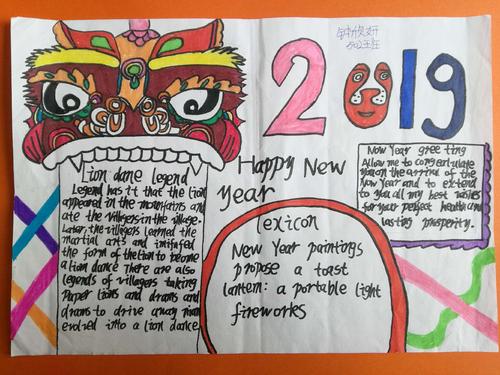 钟欣妍
2019
Happy New
Year
Lion dane legend
Legend has it that the lion
appeared in the mountains and
ate the villagers in the village.
Later, the villagers learned the
martial arts and imitated
the form of the lion to become
a lion dance There are also
legends of villagers taking
Paper lions and drams and
drams to drive away nian
evolved into a lion dance.
lexicon
New Year paintings
propose a toast
lantern: a portable light
fireworks
New Year greeting
Allow me to congratulate
you on the arrival of the
New Year and to extend
to you all my best wishes
for your perfect health and
lasting prosperity.